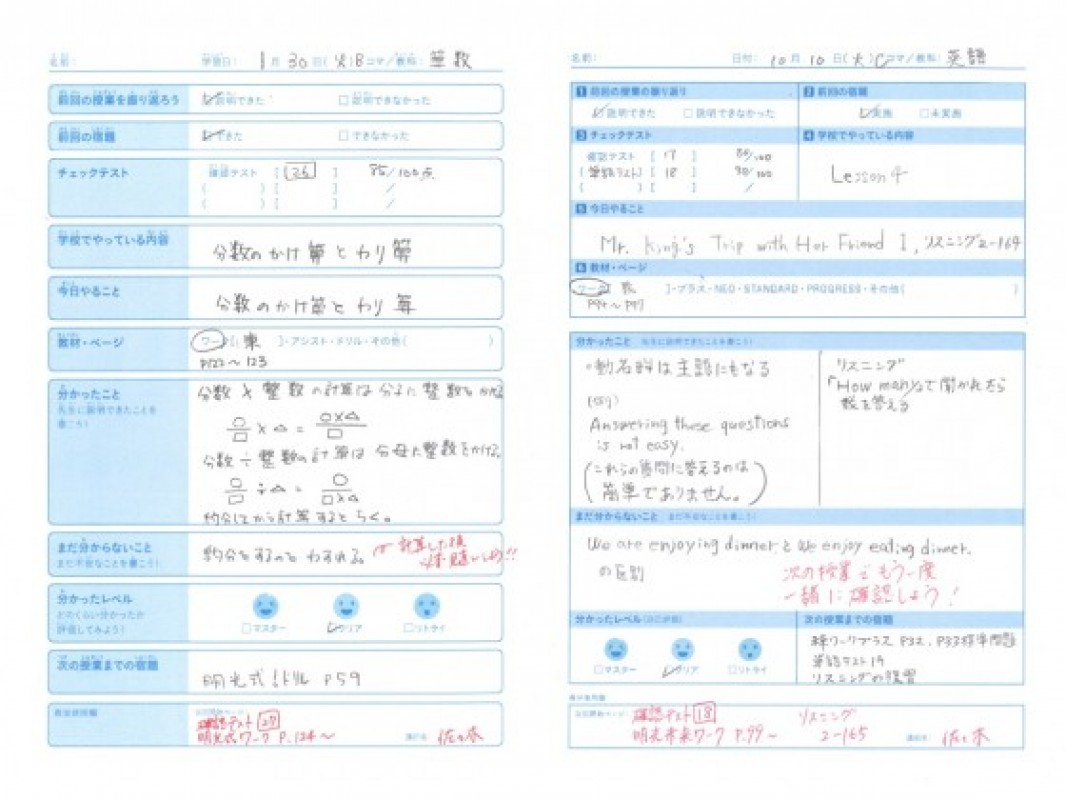 名前:
学習日: 1月30日(火)Bコマ/教科: 算数
前回の授業を振り返ろう
説明できた
説明できなかった
前回の宿題
できた
できなかった
チェックテスト
確認テスト [26] 85/100点
( ) [ ] /
( ) [ ] /
学校でやっている内容
分数のかけ算とわり算
今日やること
分数のかけ算とわり算
教材・ページ
ワーク[ 東 ]・アシスト・ドリル・その他( )
P122〜123
分かったこと
先生に説明できたことを書こう!
分数×整数の計算は分子に整数をかける
○/□ × △ = ○×△/□
分数÷整数の計算は分母に整数をかける。
○/□ ÷ △ = ○/□×△
約分してから計算するとらく。
まだ分からないこと
まだ不安なことを書こう!
約分をするのをわすれる。
計算した後
見直ししよう!!
分かったレベル
どのくらい分かったか評価してみよう!
マスター
クリア
リトライ
次の授業までの宿題
明光式!ドリル P59
確認テスト[27]
明光式ワーク P.124〜
佐々木
名前:
日付: 10月10日(火)Cコマ/教科: 英語
1 前回の授業の振り返り
説明できた
説明できなかった
2 前回の宿題
実施
未実施
3 チェックテスト
確認テスト [ 17 ] 80/100
(単語テスト) [ 18 ] 90/100
( ) [ ] /
4 学校でやっている内容
Lesson 4
5 今日やること
Mr. King's Trip with Her Friend 1, リスニング2-164
6 教材・ページ
ワーク[ ]・プラス・NEO・STANDARD・PROGRESS・その他( )
P94〜P97
分かったこと 先生に説明できたことを書こう!
・動名詞は主語にもなる
(例)
Answering these questions
is not easy.
(これらの質問に答えるのは
簡単でありません。)
リスニング
「How many」で聞かれたら
数を答える
まだ分からないこと まだ不安なことを書こう!
We are enjoying dinner. と We enjoy eating dinner.
の区別
次の授業でもう一度
一緒に確認しよう!
分かったレベル(自己評価)
マスター
クリア
リトライ
次の授業までの宿題
ワークプラス P32, P33標準問題
単語テスト19
リスニングの練習
確認テスト[18]
ワーク P.99〜
リスニング
2-165
佐々木